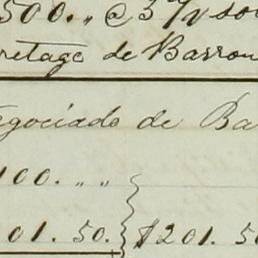 500. " @ 3 1/2
retage de Barron
egociado de Ba
100. " "
01. 50. } $201. 50